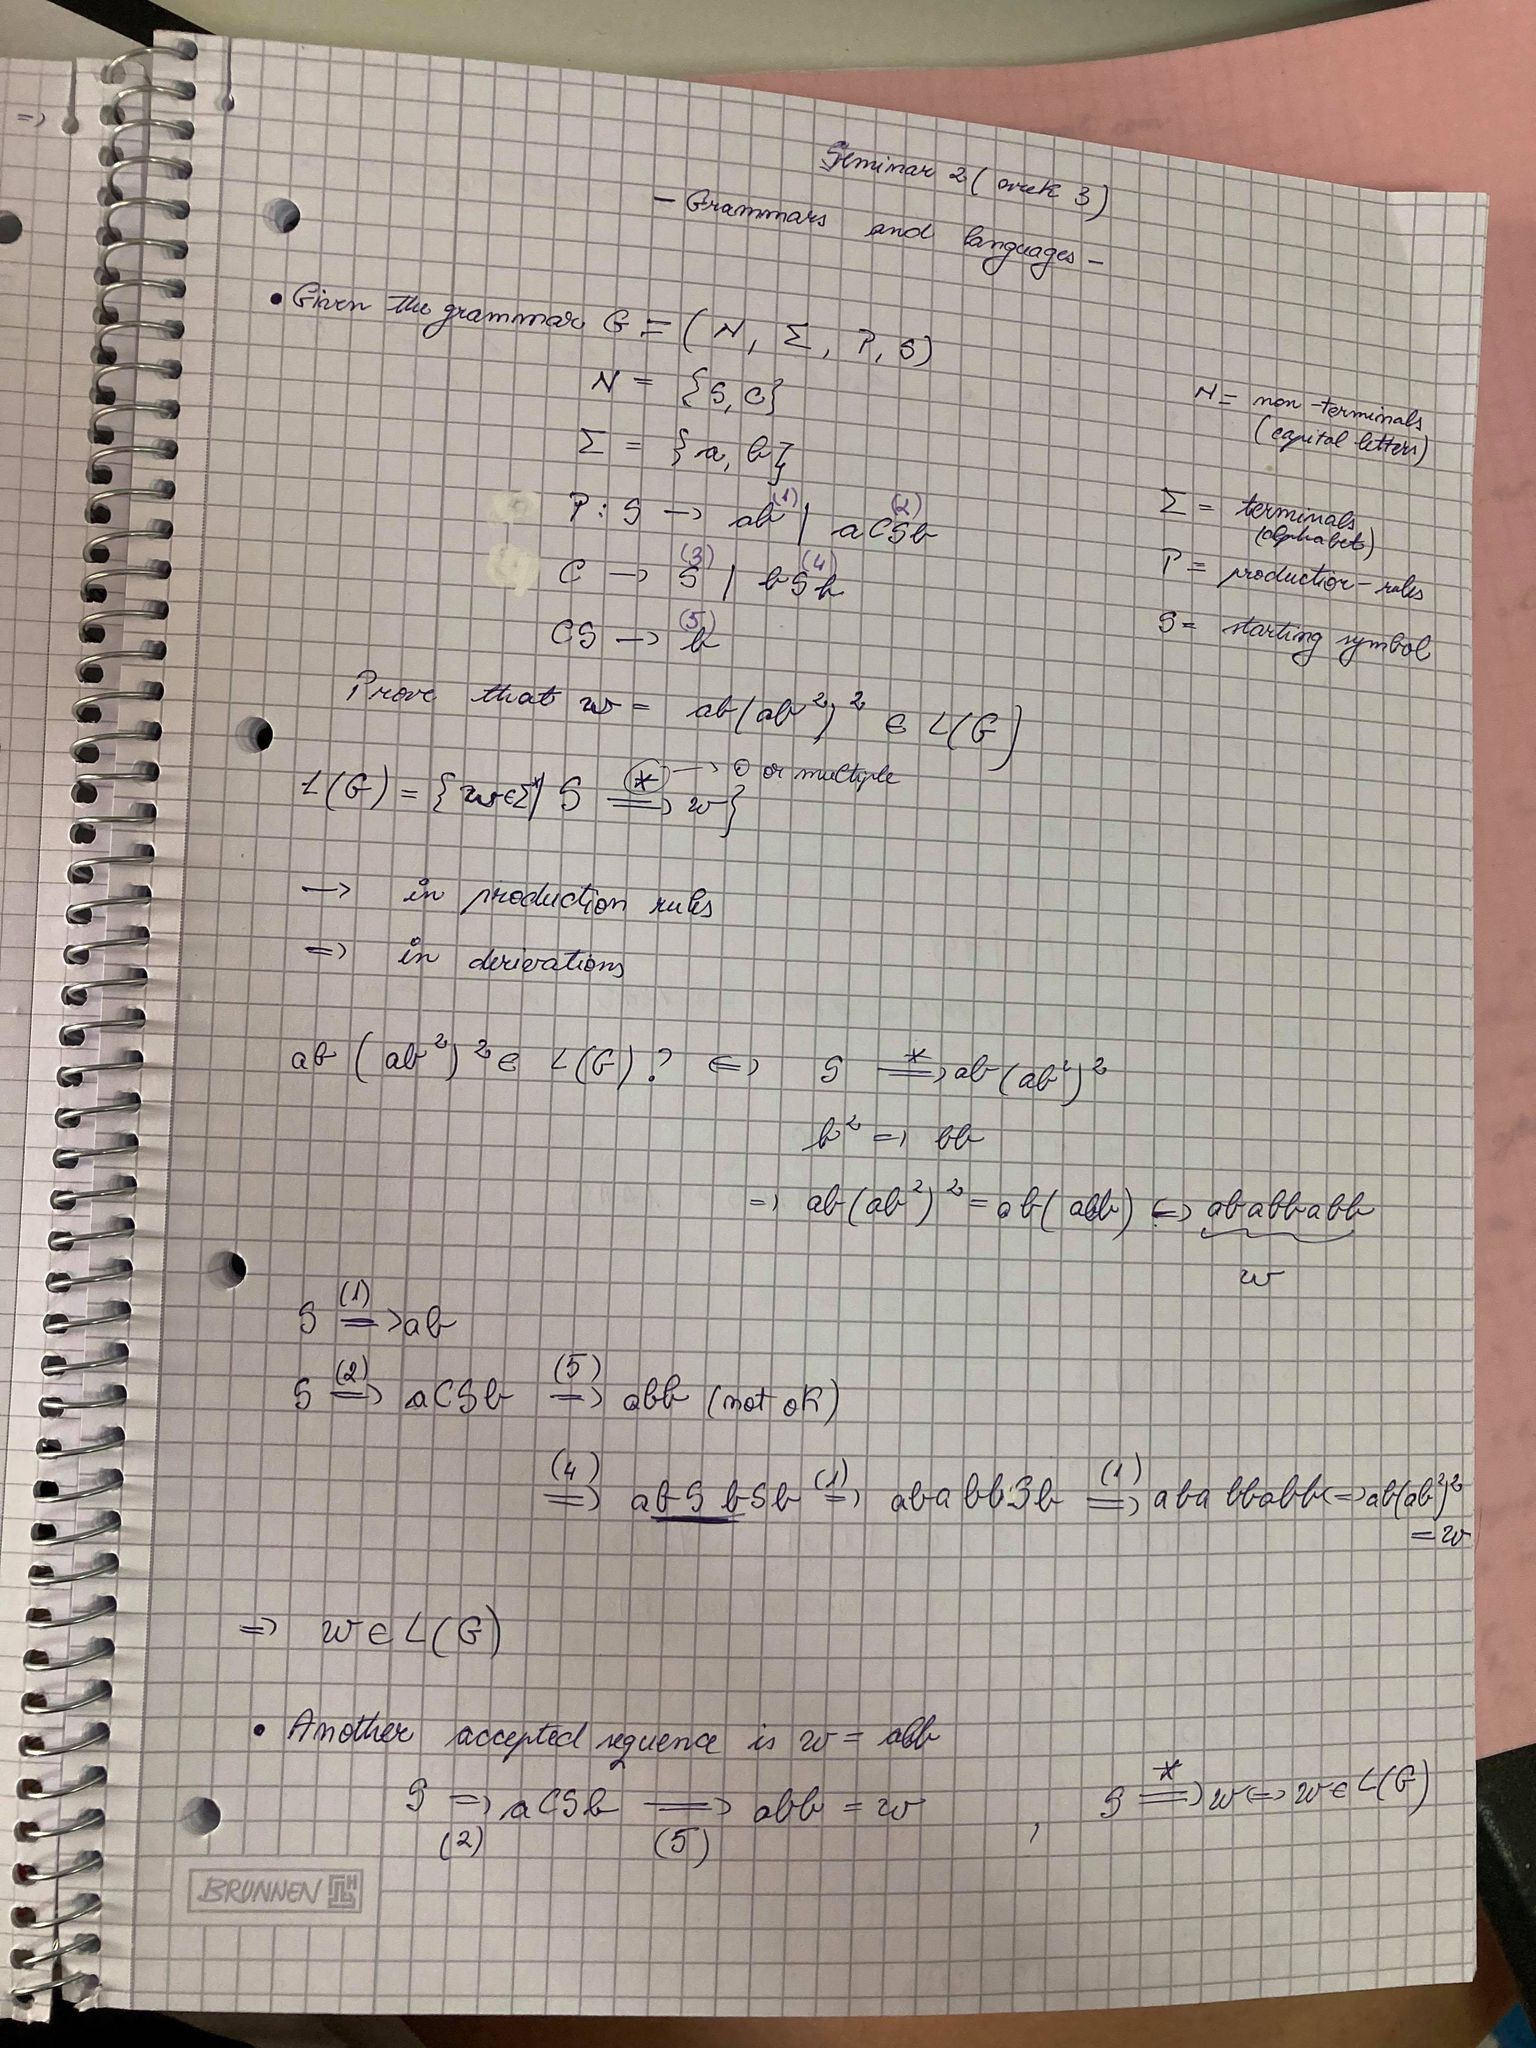 =>
Seminar 2 (week 3)
- Grammars and languages -
• Given the grammar G = (N, Σ, P, S)
N = {S, C}
N = non-terminals
(capital letters)
Σ = {a, b}
Σ = terminals
(alphabet)
P: S -> ab (1) | aCSb (2)
C -> S (3) | bSb (4)
P = production-rules
CS -> b (5)
S = starting symbol
Prove that w = ab(ab²)² ∈ L(G)
L(G) = {w∈Σ* | S =*=> w} -> 0 or multiple
-> in production rules
=> in derivations
ab(ab²)² ∈ L(G)? <=> S =*=> ab(ab²)²
b² => bb
=> ab(ab²)² = ab(abb) <=> ababbabb
w
S =(1)=> ab
S =(2)=> aCSb =(5)=> abb (not ok)
=(4)=> abSbSb =(1)=> ababbSb =(1)=> ababbabb <=> ab(ab²)²
= w
=> w ∈ L(G)
• Another accepted sequence is w = abb
S =>(2) aCSb =>(5) abb = w , S =*=> w <=> w ∈ L(G)
BRUNNEN